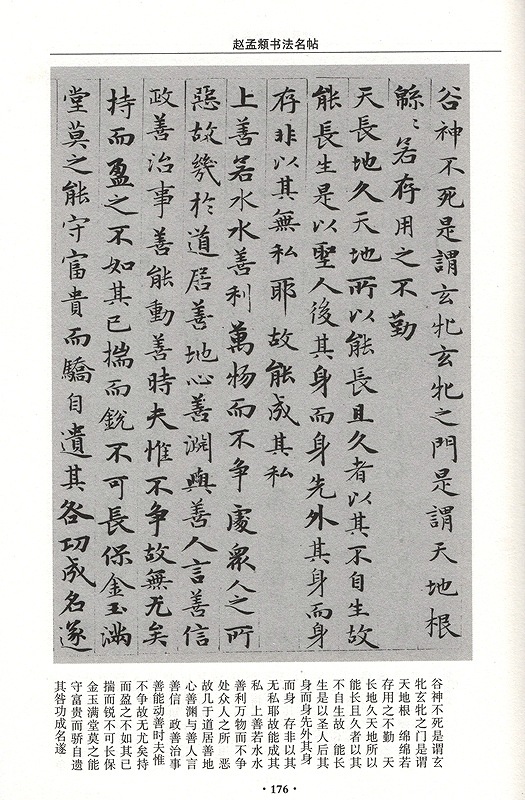 赵孟頫书法名帖
谷神不死是謂玄牝玄牝之門是謂天地根
緜〻若存用之不勤
天長地久天地所以能長且久者以其不自生故
能長生是以聖人後其身而身先外其身而身
存非以其無私耶故能成其私
上善若水水善利萬物而不争處衆人之所
惡故幾於道居善地心善淵與善人言善信
政善治事善能動善時夫惟不争故無尤矣
持而盈之不如其已揣而銳不可長保金玉滿
堂莫之能守富貴而驕自遺其咎功成名遂
谷神不死是谓玄
牝玄牝之门是谓
天地根 绵绵若
存用之不勤 天
长地久天地所以
能长且久者以其
不自生故 能长
生是以圣人后其
身而身先外其身
而身 存非以其
无私耶故能成其
私 上善若水水
善利万物而不争
处众人之所 恶
故几于道居善地
心善渊与善人言
善信 政善治事
善能动善时夫惟
不争故无尤矣持
而盈之不如其已
揣而锐不可长保
金玉满堂莫之能
守富贵而骄自遗
其咎功成名遂
· 176 ·